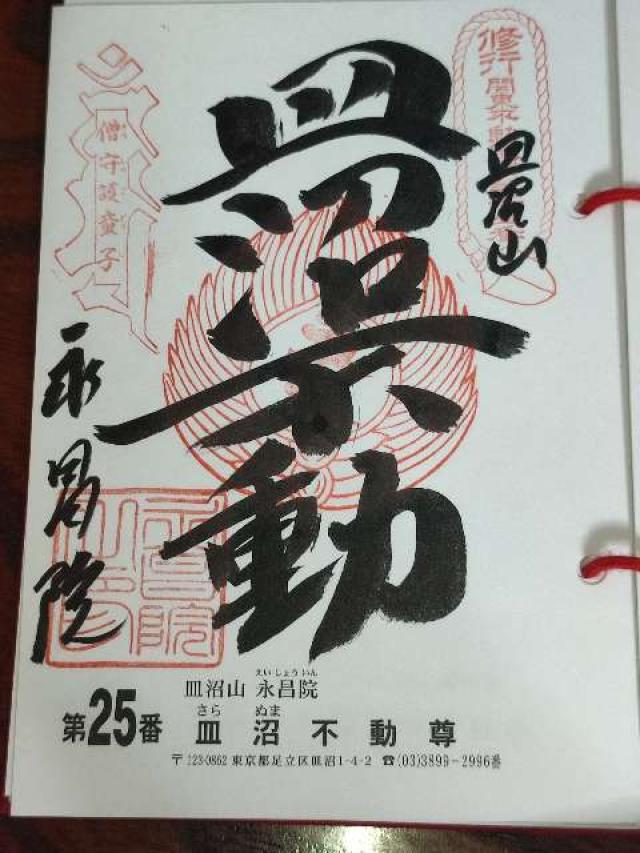 修行
関東
皿沼山
皿沼不動
僧守護童子
永昌院
えいしょういん
皿沼山 永昌院
第25番
さら ぬま
皿沼不動尊
〒123-0862 東京都足立区皿沼1-4-2 ☎(03)3899-2996番